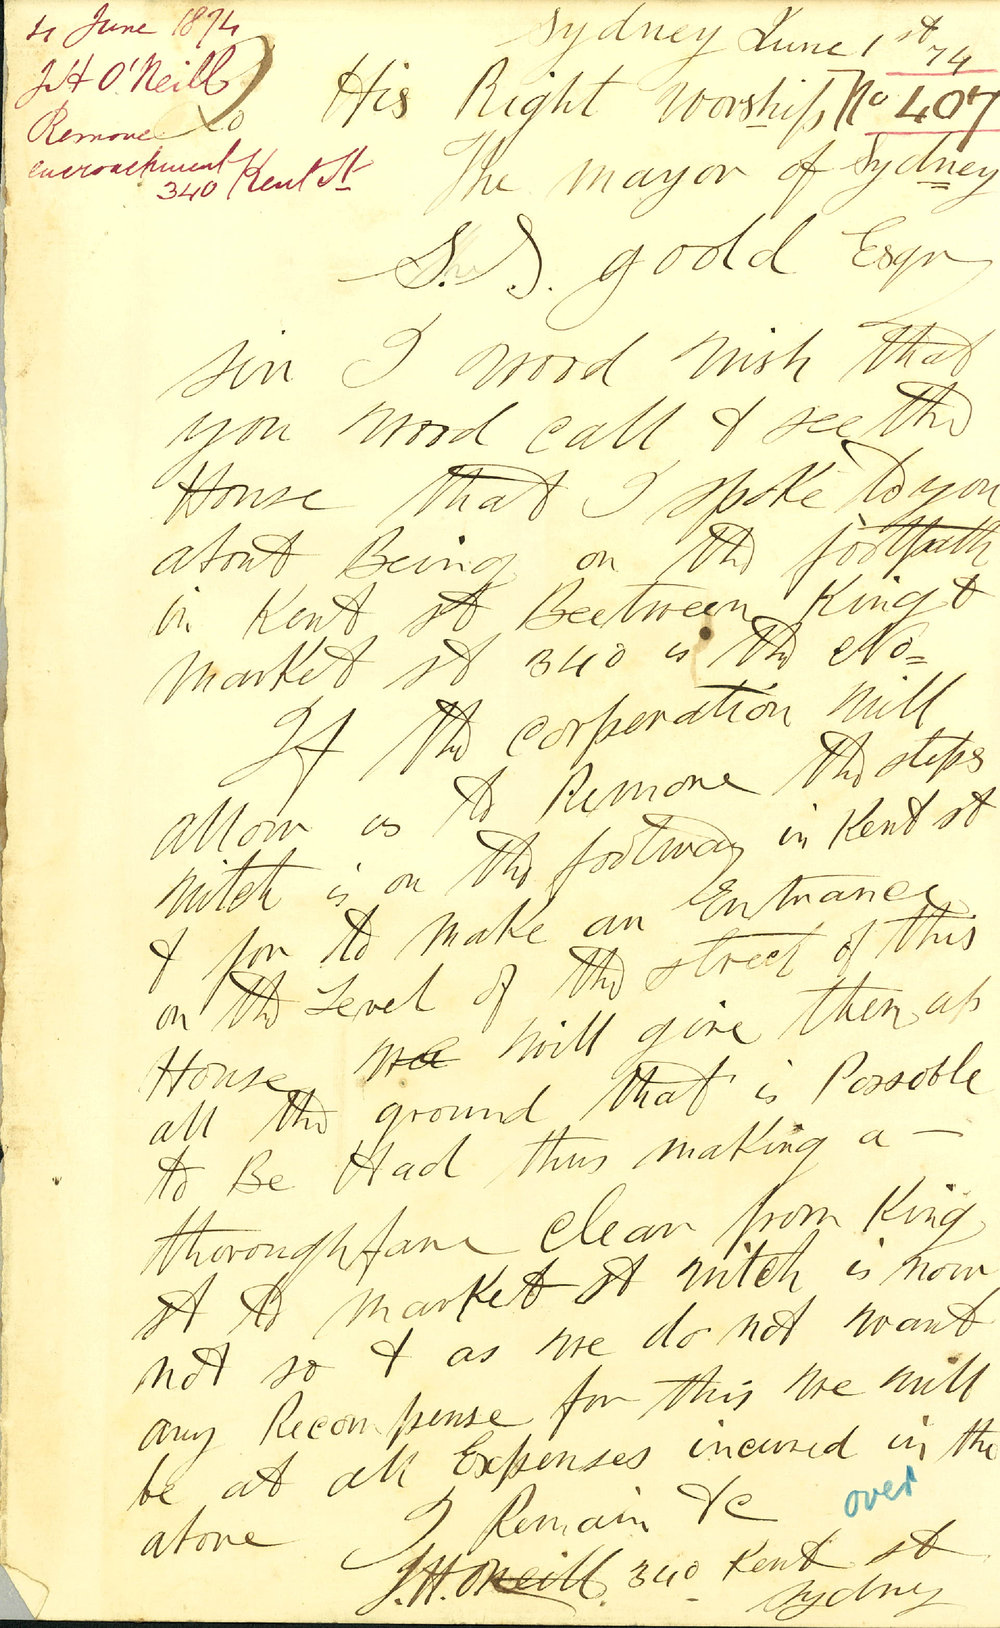 4 June 1874
J H O'Neill
Remove
encroachment
340 Kent St
Sydney June 1st 74
His Right Worship No 407
The mayor of Sydney
S. S. goold Esqr
sir I wood wish that
you wood call & see the
House that I spoke to you
about Being on the footpath
in Kent st Beetween King &
market st 340 is the No=
If the corporation will
allow us to Remove the steps
witch is on the footway in Kent st
& for to make an Entrance
on the Level of the street of this
House we will give them up
all the ground that is Possoble
to Be Had thus making a —
thoroughfare clear from King
st to market st witch is now
not so & as we do not want
any Recompense for this we will
be at all Expenses incured in the
above I Remain &c
over
J.H. ONeill. 340 Kent st
Sydney